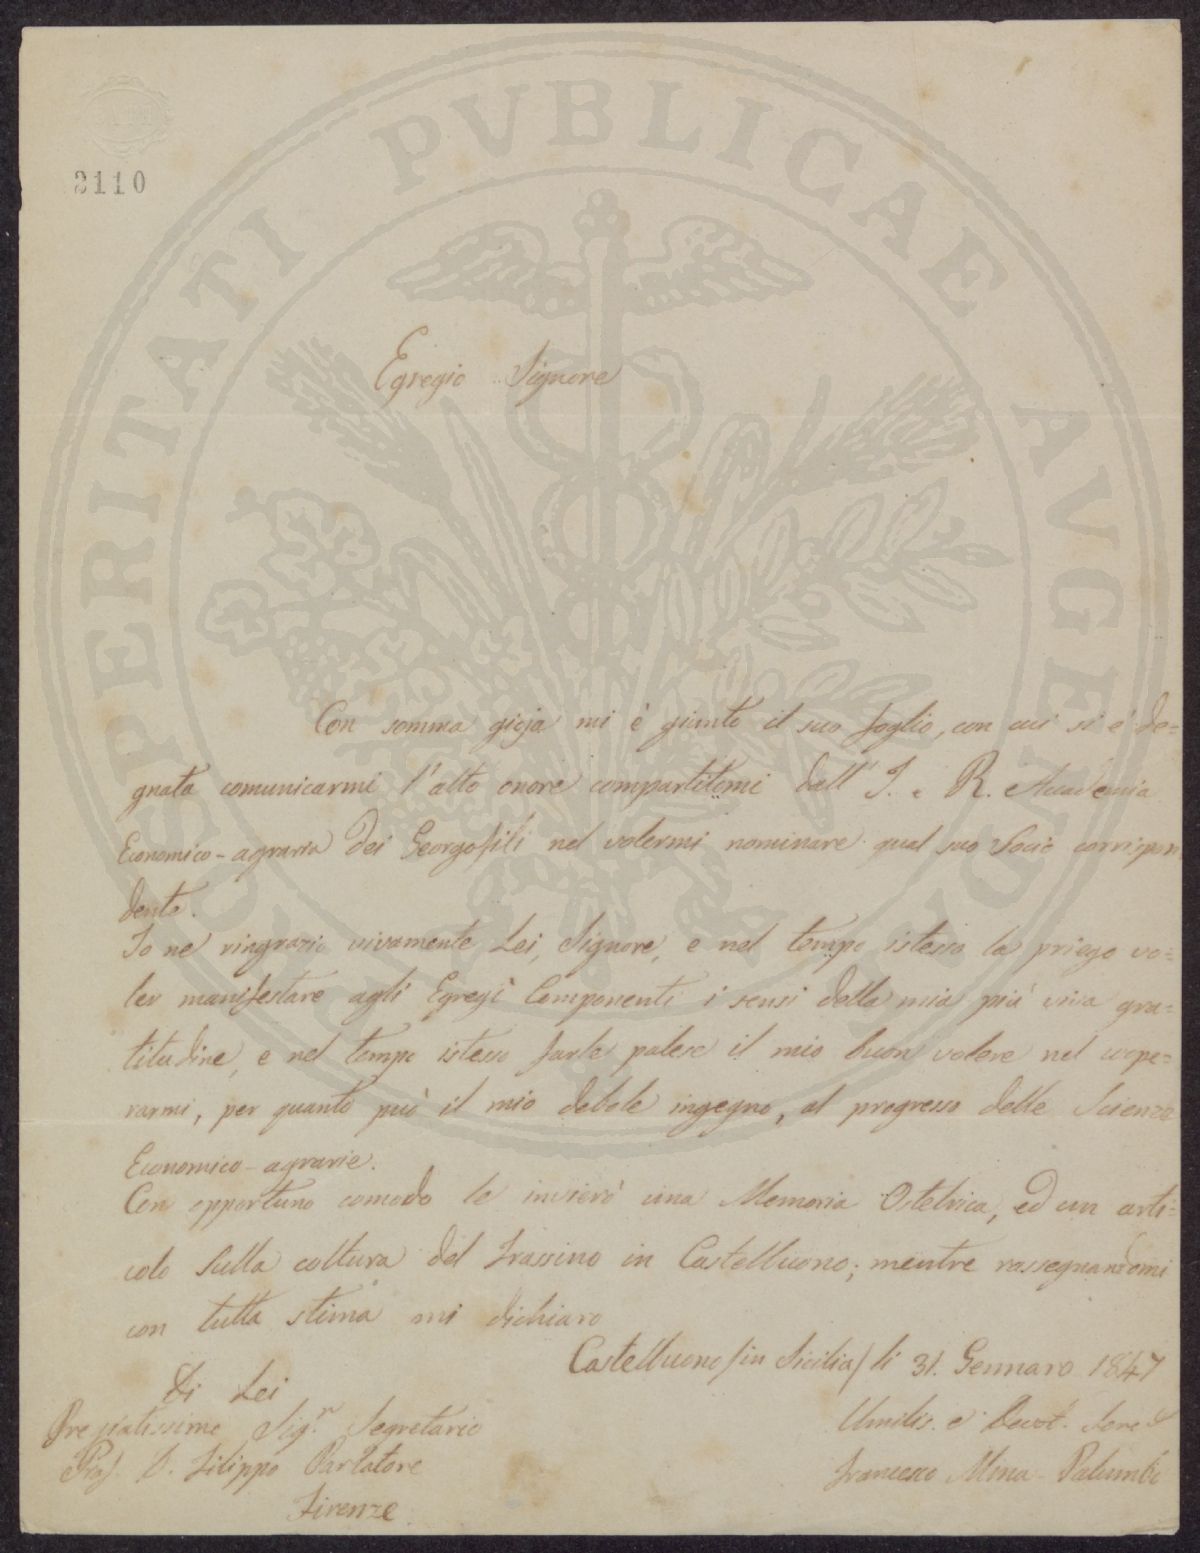 PROSPERITATI PVBLICAE AVGENDAE
2110
Egregio Signore
Con somma gioja mi è giunto il suo foglio, con cui si è de=
gnata comunicarmi l'alto onore compartitomi dall' I. e R. Accademia
Economico-agraria dei Georgofili nel volermi nominare qual suo Socio corrispon
dente.
Io ne ringrazio vivamente Lei, Signore, e nel tempo istesso la priego vo=
ler manifestare agli Egregi Componenti i sensi della mia più viva gra=
titudine, e nel tempo istesso farle palese il mio buon volere nel coope=
rarmi, per quanto può il mio debole ingegno, al progresso delle Scienze
Economico-agrarie.
Con opportuno comodo le invierò una Memoria Ostetrica, ed un arti=
colo sulla coltura del frassino in Castelbuono; mentre rassegnandomi
con tutta stima mi dichiaro
Castelbuono /in Sicilia/ li 31. Gennaro 1847
Di Lei
Pregiatissimo Sig.r Segretario
Prof. D. Filippo Parlatore
Firenze
Umilis. e Devot. Serv.
Francesco Mina-Palumbo